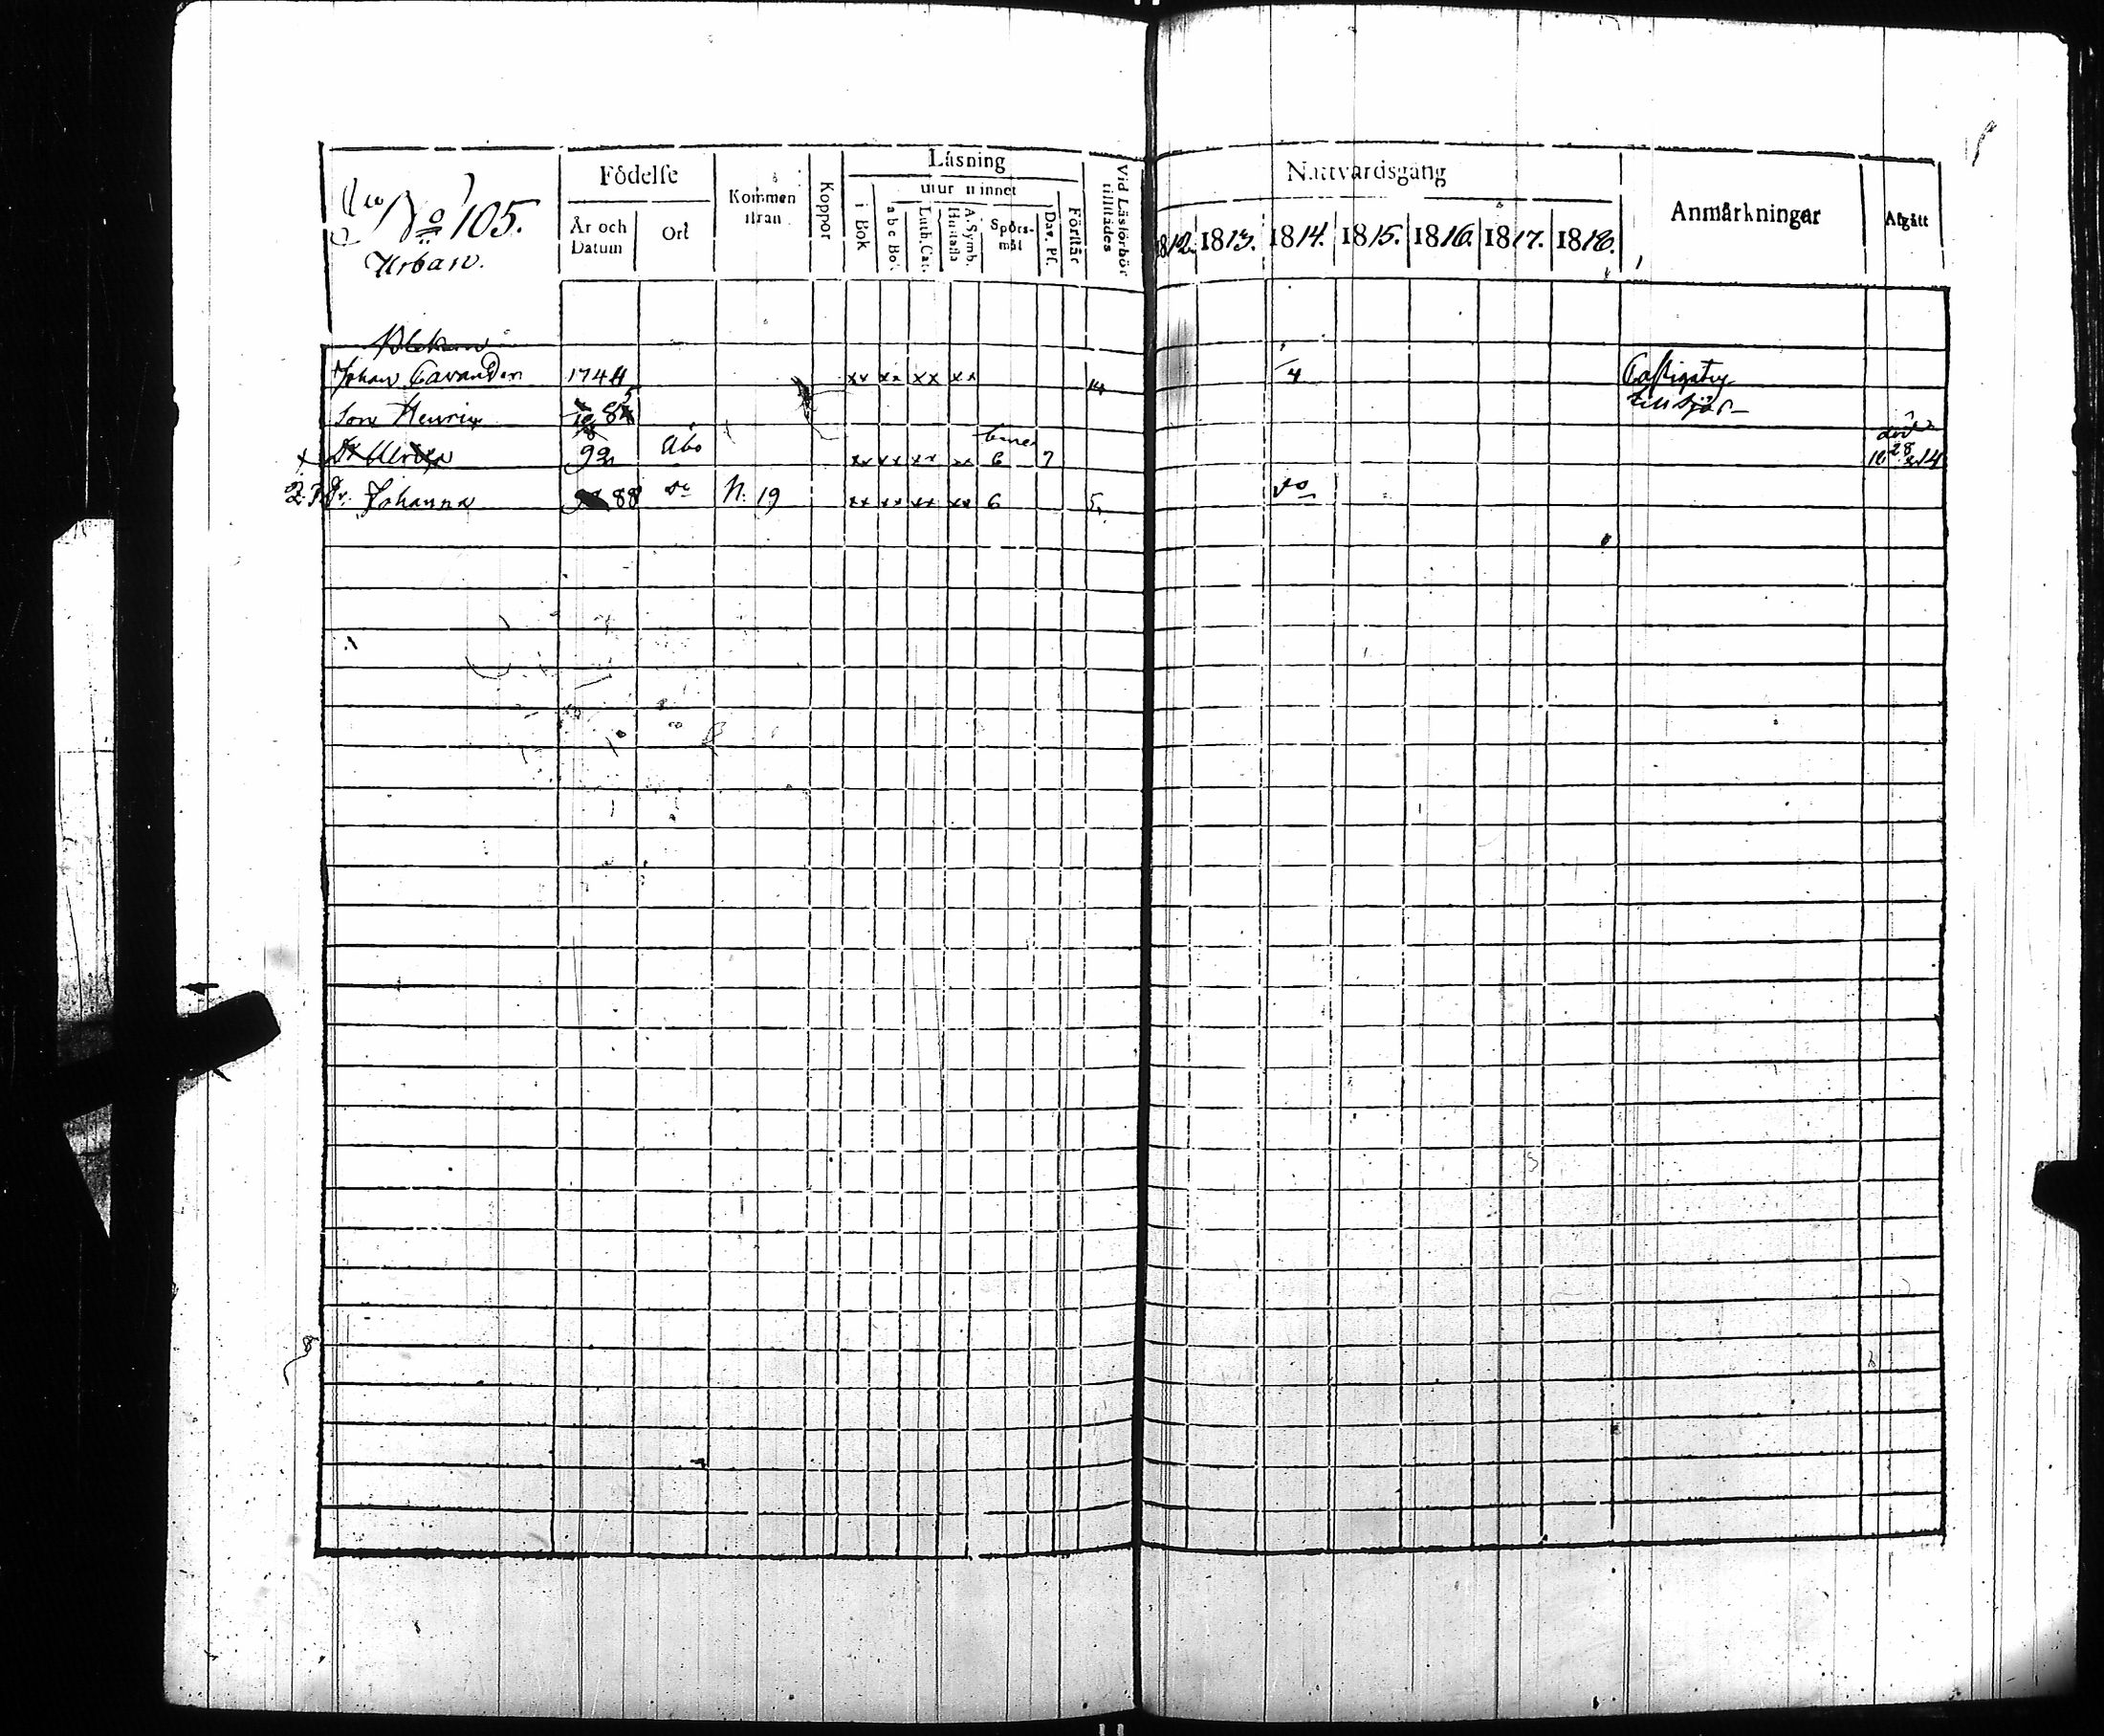 No 105.
Urban.
Födelse
År och Datum
Ort
Kommen ifrån
Koppor
Läsning
utur minnet
i Bok
a b c Bok
Luth. Cat.
A. Symb. Hustafla
Spörsmål
Dav. Ps.
Förstår
Vid Läsförhör tillstädes
Nattvardsgång
1812. 1813. 1814. 1815. 1816. 1817. 1818.
Anmärkningar
Afgått
Johan Cavander 1744 xx xx xx xx 14 4
Son Henric 8 till sjös
x 92 Åbo xx xx xx xx 6 7 död 28 14
Dr. Johanna 88 Do N: 19 xx xx xx xx 6 5